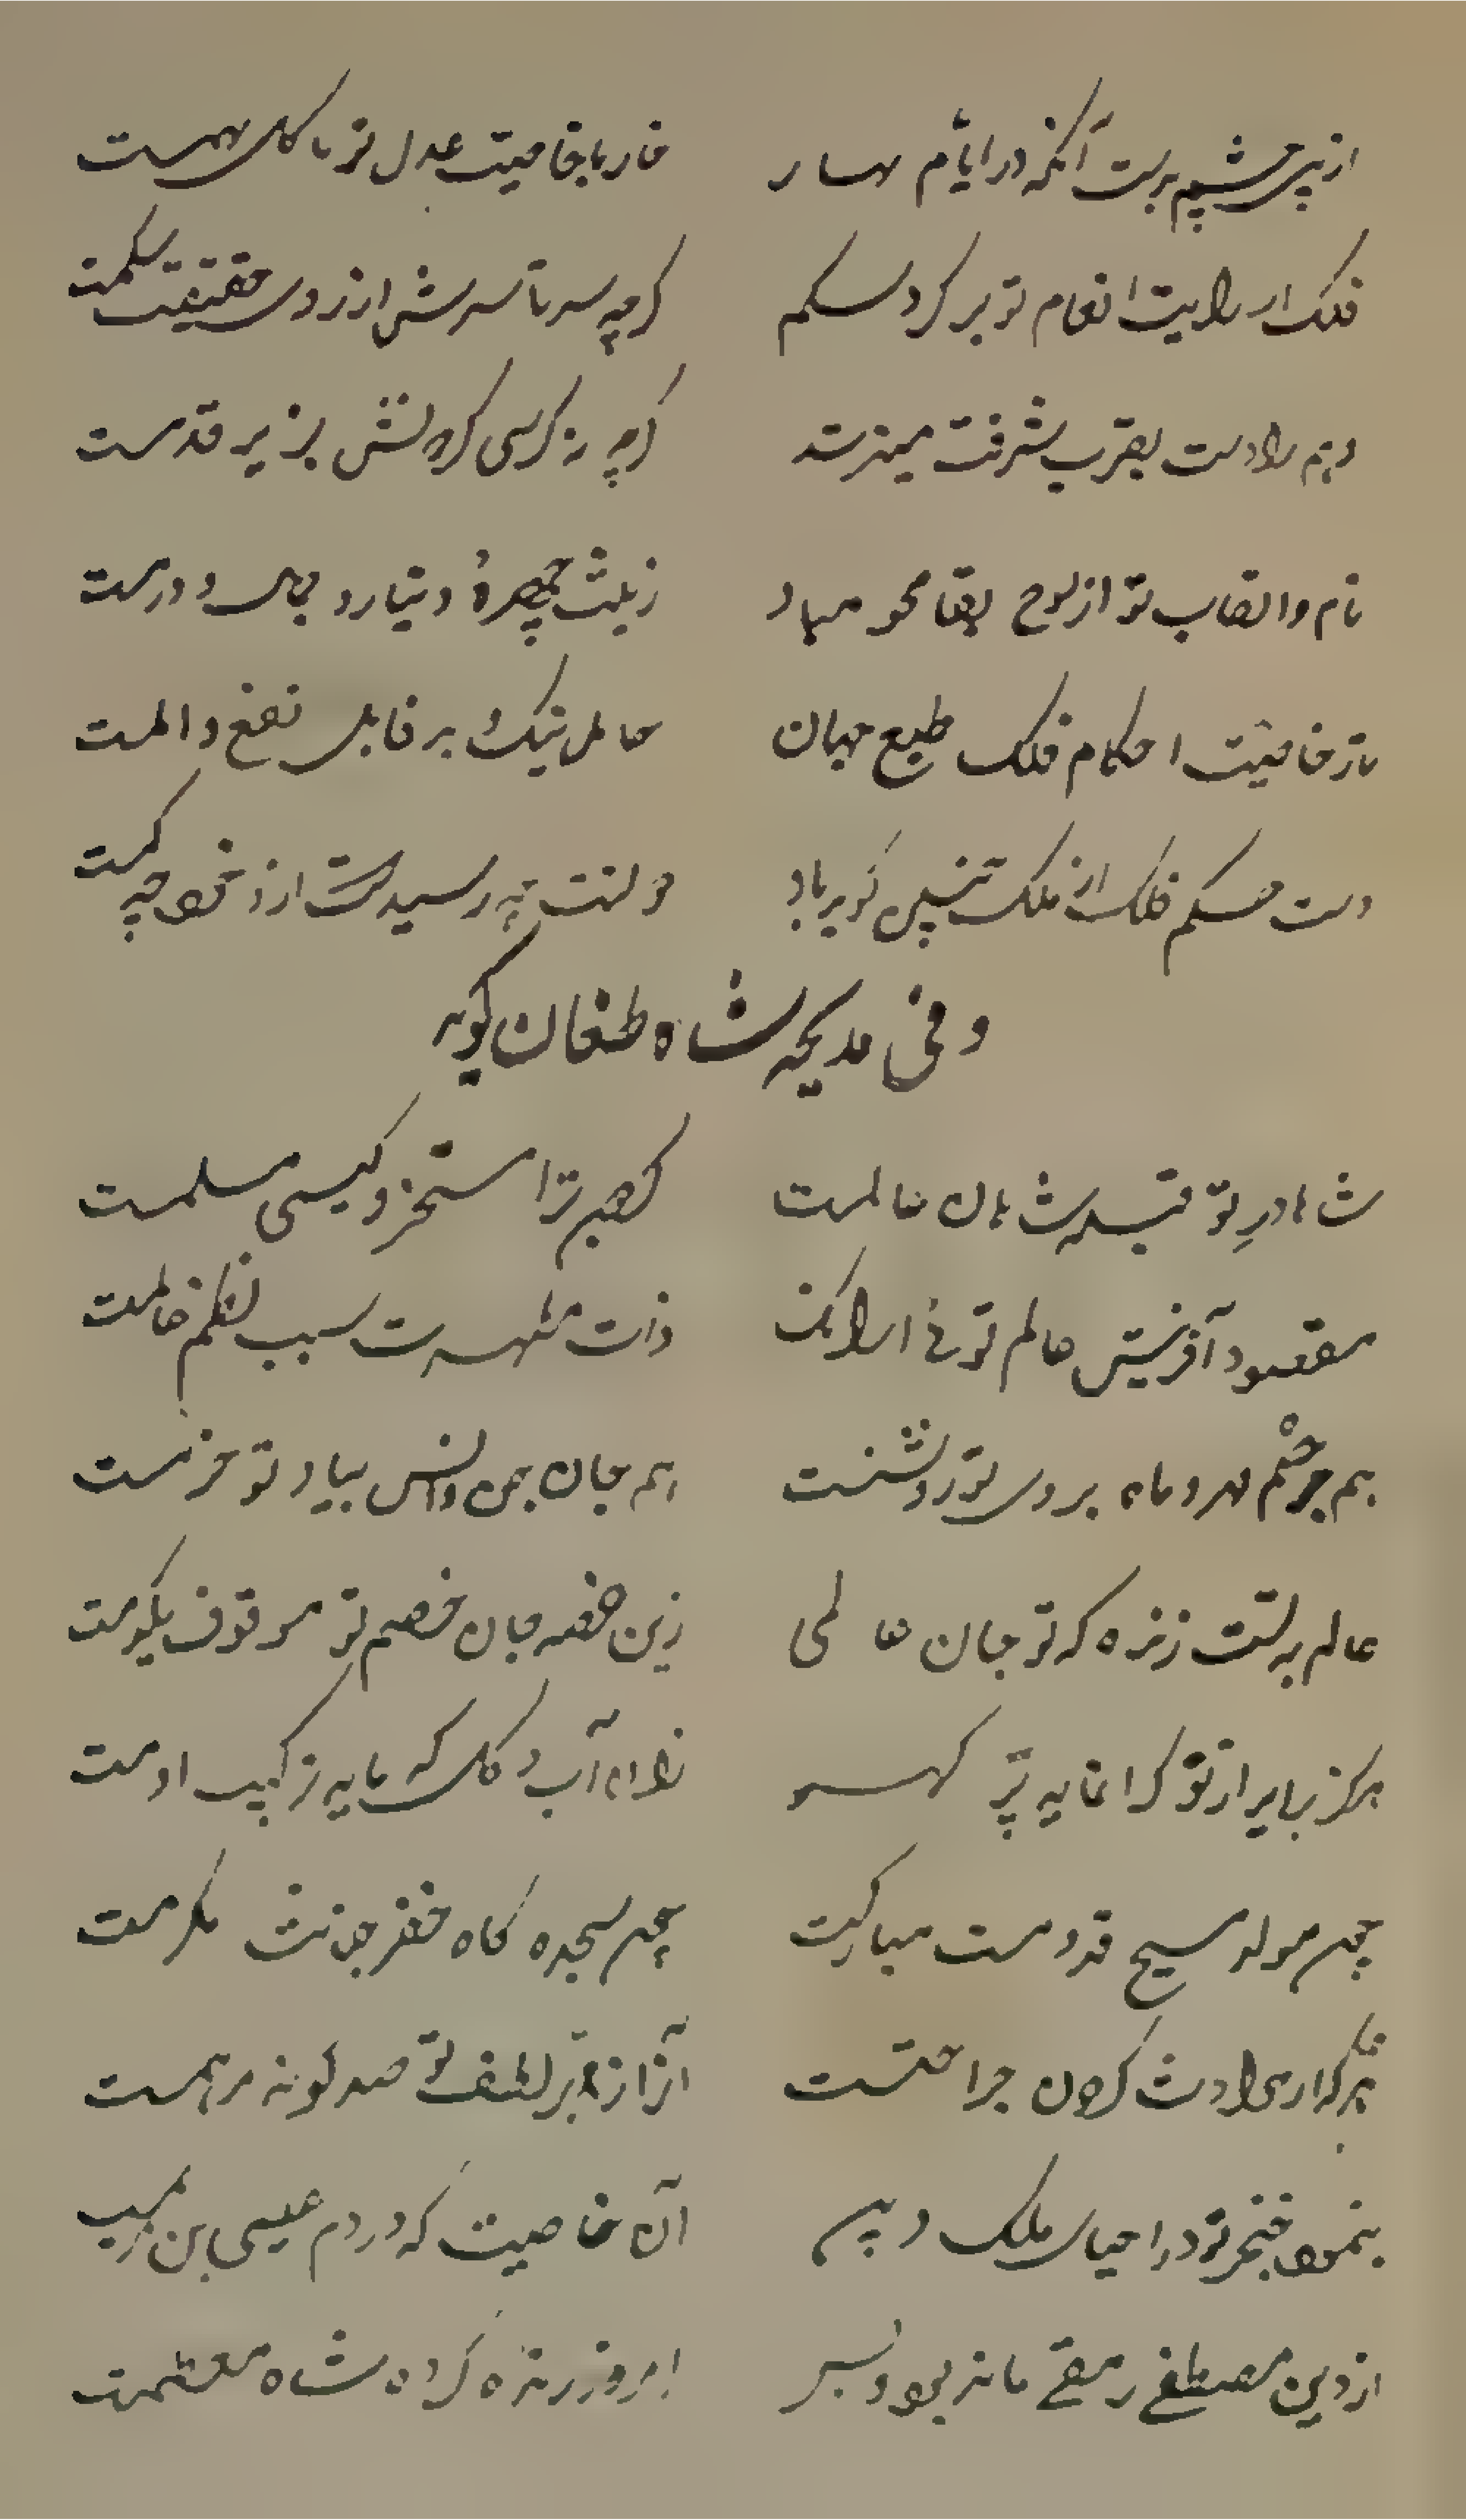 از پی چشم بدست آنکه در ایام بهار
خار با خاصیت عدل تو با گل بهمست
فلک از رایت انعام تو پر کرد شکم
گرچه سر تا سرش از روی حقیقت شکمست
وهم را دست بقرب شرفت می نرسد
گرچه نه کرسی گردونش بزیر قدمست
نام و القاب تو از لوح بقا محو مباد
زینت چهرهٔ دینار و درمست
تاز خاصیت احکام فلک طبع جهان
حامل نیک و بد قابل نفع و المست
دست حکم فلک از ملک تو بر باد
دولتت چه رسیدست از خود چه کمست
و فی مدیحه شاه طغان گوید
شاها در تو قبله شاهان عالمست
گردون ترا مسخر و گیتی مسلمست
مقصود آفرینش عالم توئی از آنک
ذات مطهرت سبب نظم عالمست
هم جرم مهر و ماه بروی تو روشنست
هم جان جن و انس بیاد تو خرمست
عالم بتست زنده که تو جان عالمی
زین جان خصم تو موقوف یکدمست
هرگز برابر از تو گرانمایه تر گهر
زان آب و گل که مایه ترکیب آدمست
چون مولد مسیح قدومت مبارکست
چون سجده گاه خضر جنابت مکرمست
هر کز حوادث گردون جراحتست
آنرا ز لطف تو صد گونه مرهمست
بنمود خنجر تو در احیای ملک و دین
آن خاصیت که در دم عیسی بن مریمست
از دین مصطفی رمقی مانده بود و بس
امروز زنده کرده شاه معظمست